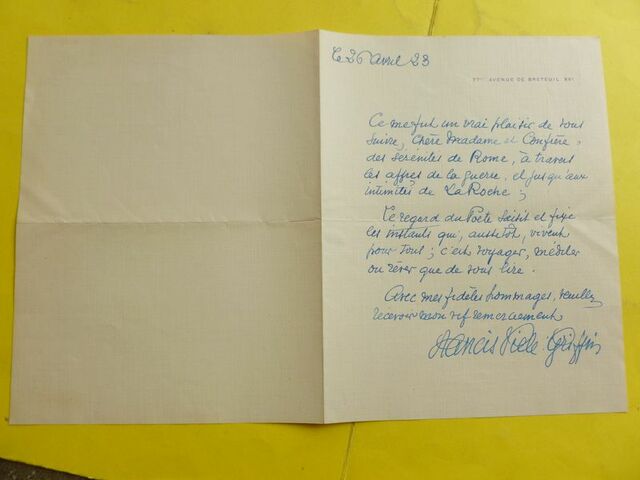 Le 26 Avril 23
AVENUE DE BRETEUIL XVe
Ce me fut un vrai plaisir de vous
suivre, chère Madame et Confrère,
des sérénités de Rome, à travers
les affres de la guerre, et jusqu'aux
intimités de La Roche ;
Le regard du Poète saisit et fixe
les instants qui, aussitôt, vivent
pour tout ; c'est voyager, méditer
ou rêver que de vous lire .
Avec mes fidèles hommages, veuillez
recevoir mon vif remerciement
Francis Vielé-Griffin